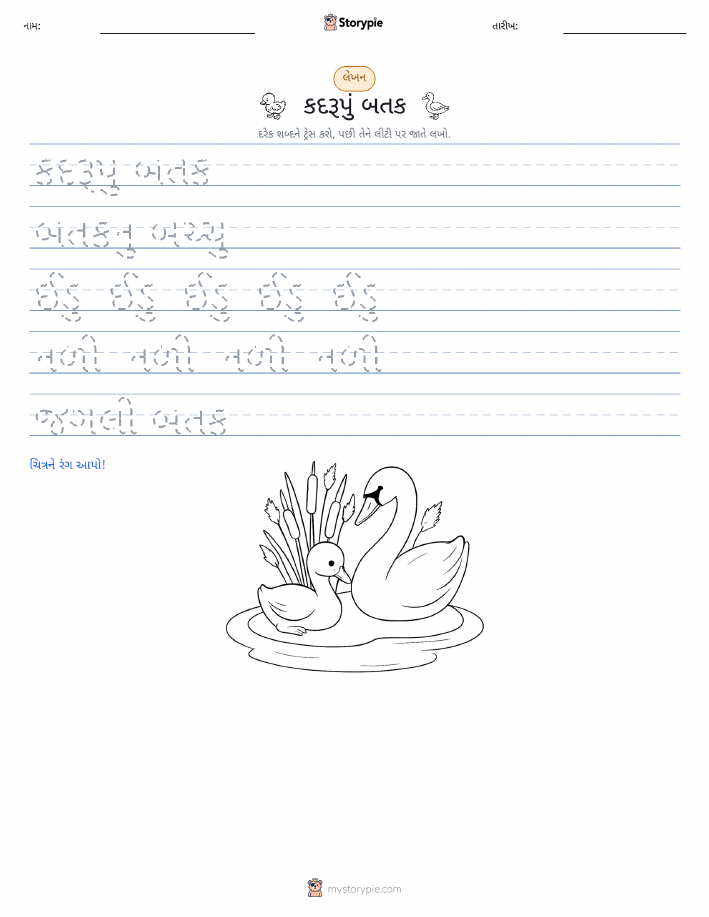 નામ:
Storypie
તારીખ:
લેખન
કદરૂપું બતક
દરેક શબ્દને ટ્રેસ કરો, પછી તેને લીટી પર જાતે લખો.
કદરૂપુ બતક
બતકનુ બચ્ચુ
ઈંડુ ઈંડુ ઈંડુ ઈંડુ ઈંડુ
નળી નળી નળી નળી
જંગલી બતક
ચિત્રને રંગ આપો!
mystorypie.com